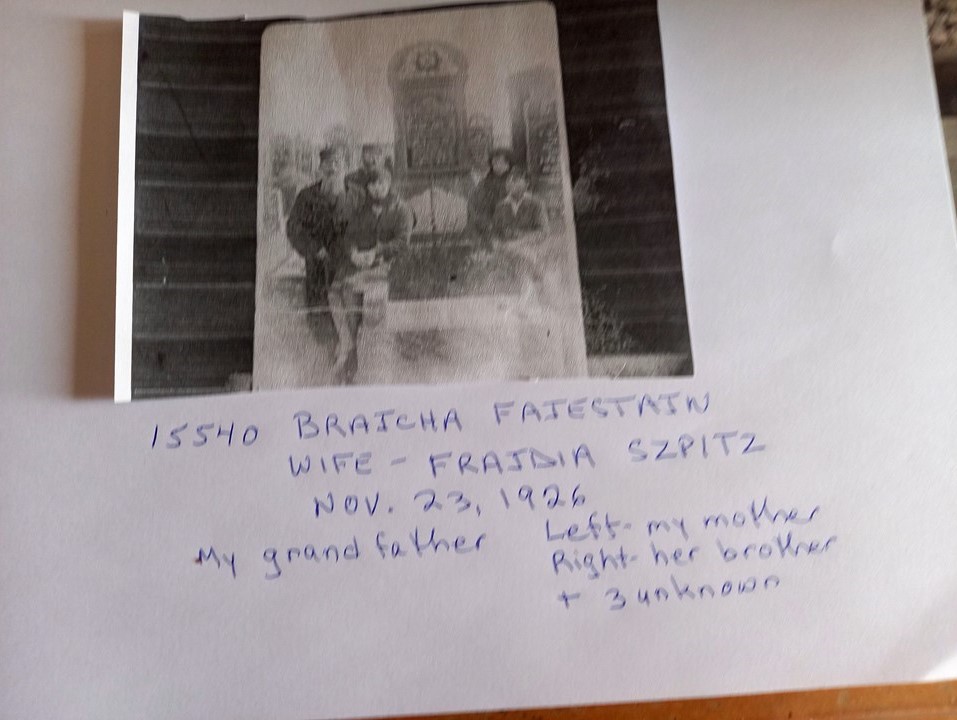 15540 BRAJCHA FAJESTAJN
WIFE - FRAJDIA SZPITZ
NOV. 23, 1926
My grandfather
Left- my mother
Right- her brother
+ 3 unknown